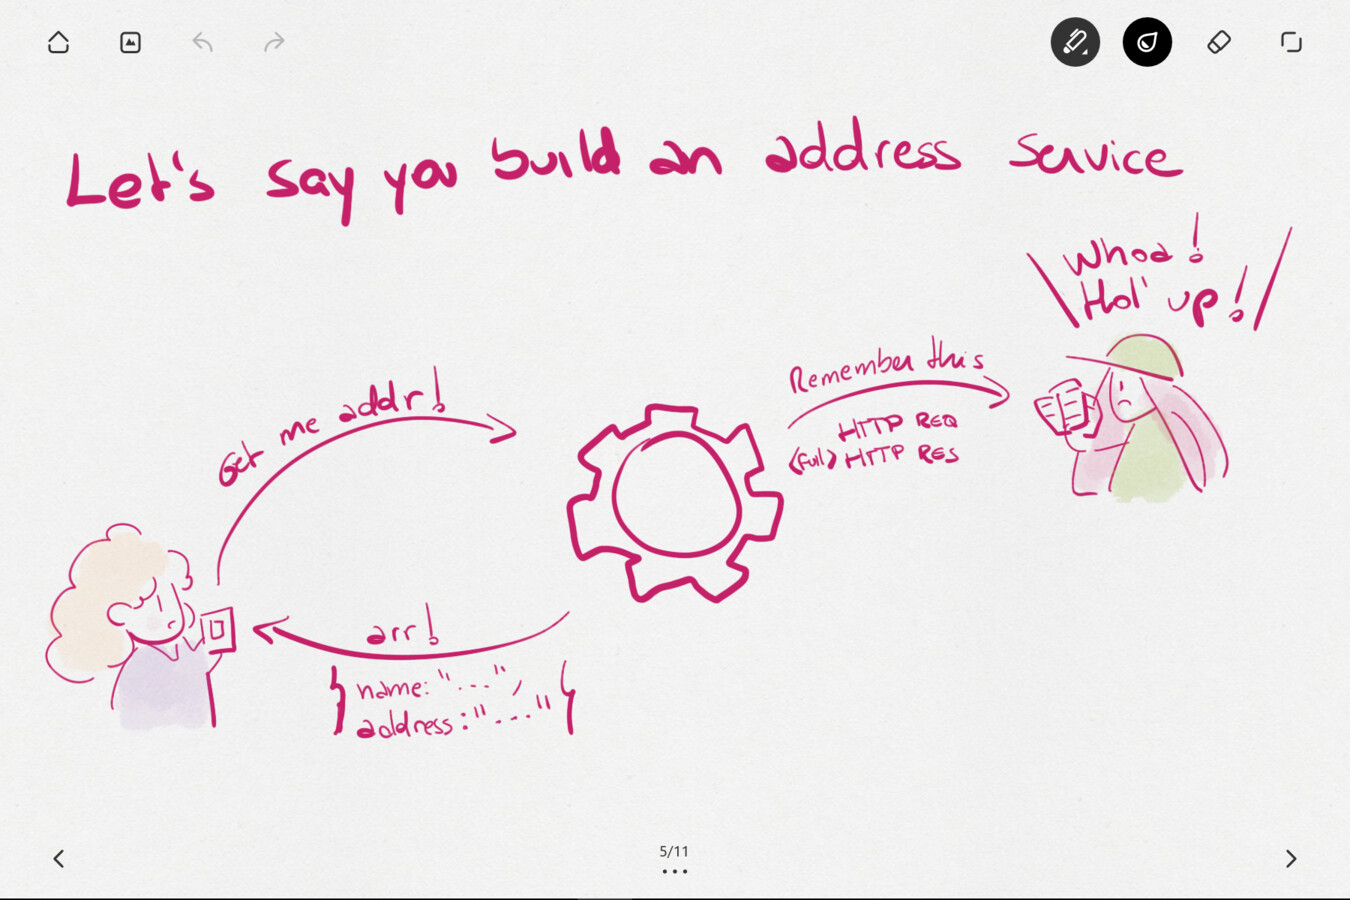 Let's say you build an address service
Whoa!
Hol' up!
Remember this
HTTP REQ
(Full) HTTP RES
Get me addr!
arr!
{ name: "...",
address: "..." }
5/11